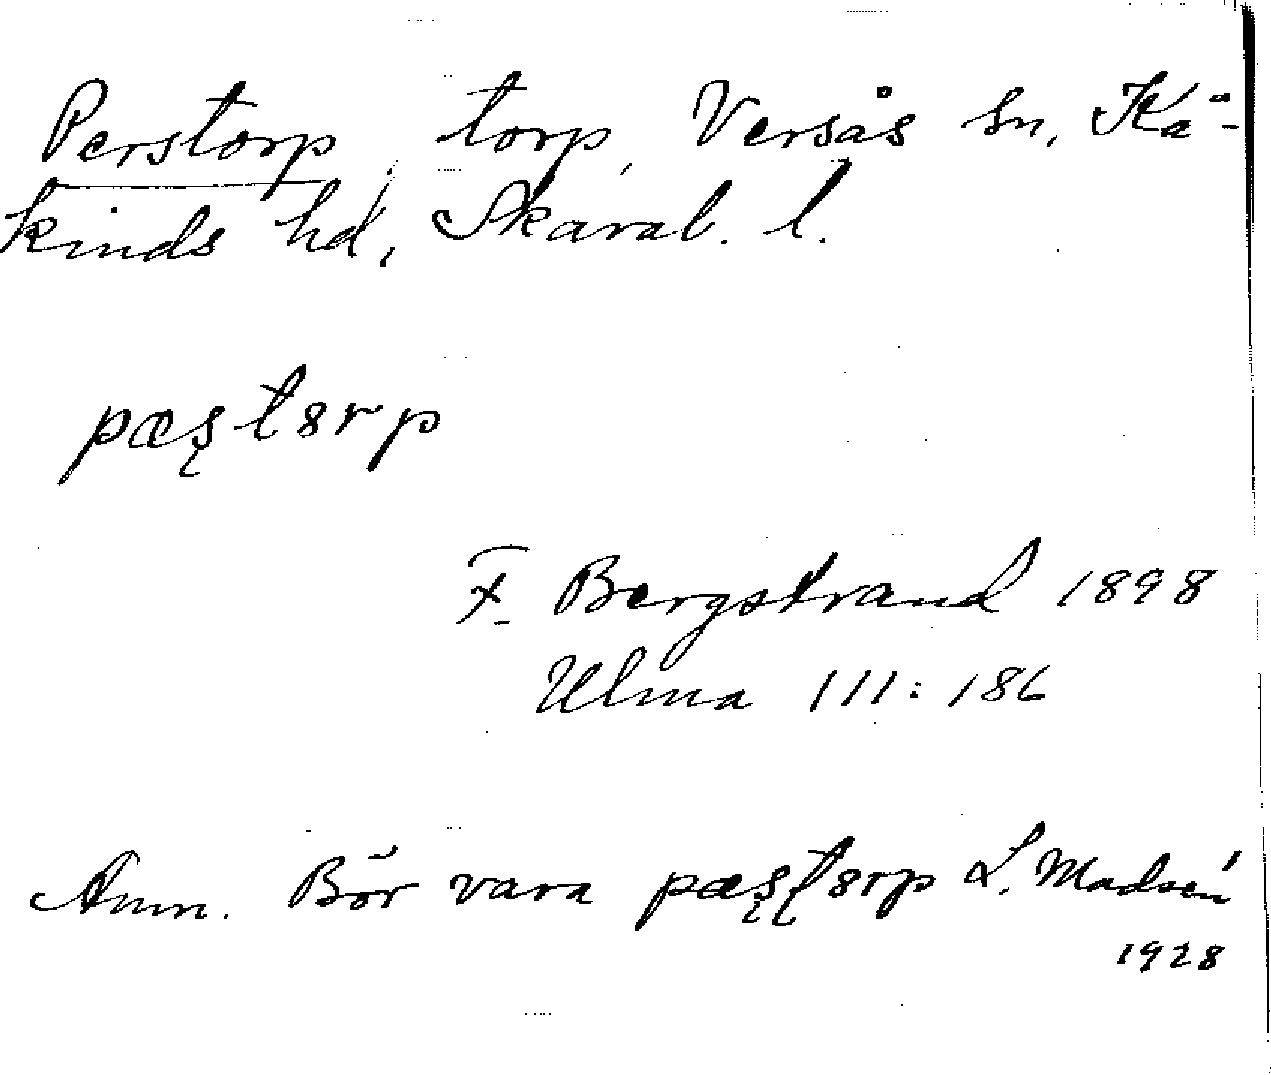 Perstorp, torp, Versås sn, Kå-
kinds hd, Skarab. l.
pæʂt8rp
F. Bergstrand 1898
Ulma 111:186
Anm. Bör vara pæʂʈ8rp L. Madsén
1928